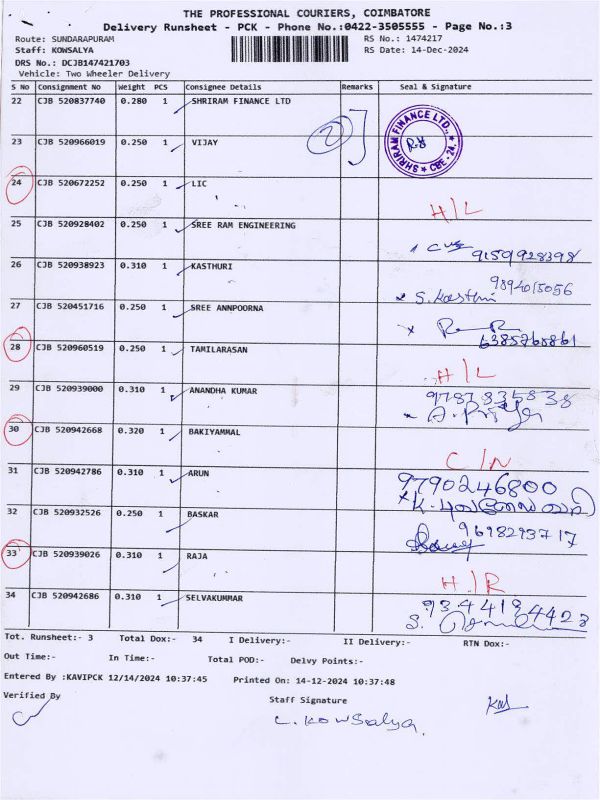 THE PROFESSIONAL COURIERS, COIMBATORE
Delivery Runsheet - PCK - Phone No.:0422-3505555 - Page No.:3
Route: SUNDARAPURAM RS No.: 1474217
Staff: KOWSALYA RS Date: 14-Dec-2024
DRS No.: DCJB147421703
Vehicle: Two Wheeler Delivery
S No Consignment No Weight PCS Consignee Details Remarks Seal & Signature
22 CJB 520837740 0.280 1 SHRIRAM FINANCE LTD
2 SHRIRAM FINANCE LTD., CBE - 24.
23 CJB 520966019 0.250 1 VIJAY
24 CJB 520672252 0.250 1 LIC
H/L
25 CJB 520928402 0.250 1 SREE RAM ENGINEERING
9159928398
26 CJB 520938923 0.310 1 KASTHURI
9894015056
S. Kasthuri
27 CJB 520451716 0.250 1 SREE ANNPOORNA
6385768861
28 CJB 520960519 0.250 1 TAMILARASAN
H/L
29 CJB 520939000 0.310 1 ANANDHA KUMAR
9787835838
A. Priya
30 CJB 520942668 0.320 1 BAKIYAMMAL
C/N
31 CJB 520942786 0.310 1 ARUN
9790246800
32 CJB 520932526 0.250 1 BASKAR
9698293717
33 CJB 520939026 0.310 1 RAJA
H/R
34 CJB 520942686 0.310 1 SELVAKUMMAR
9344194423
Tot. Runsheet:- 3 Total Dox:- 34 I Delivery:- II Delivery:- RTN Dox:-
Out Time:- In Time:- Total POD:- Delvy Points:-
Entered By :KAVIPCK 12/14/2024 10:37:45 Printed On: 14-12-2024 10:37:48
Verified By Staff Signature
L. KOWSalya.